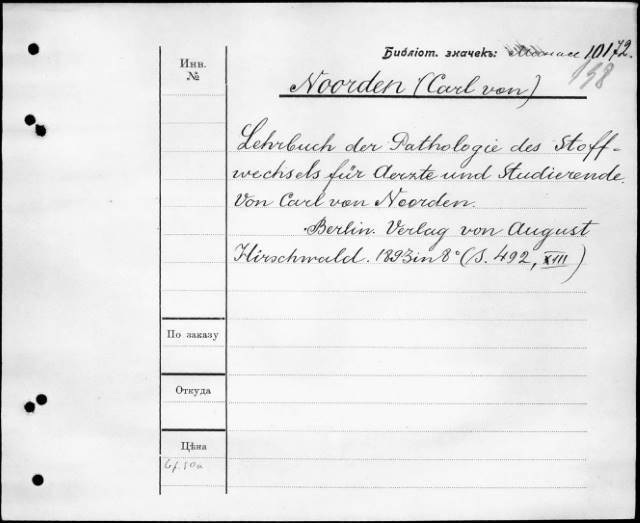 Библіот. значекъ: 10172.
98
Инв.
№
Noorden (Carl von)
Lehrbuch der Pathologie des Stoff-
wechsels für Aerzte und Studierende.
Von Carl von Noorden.
Berlin. Verlag von August
Hirschwald. 1893 in 8° (S. 492, XIII)
По заказу
Откуда
Цѣна